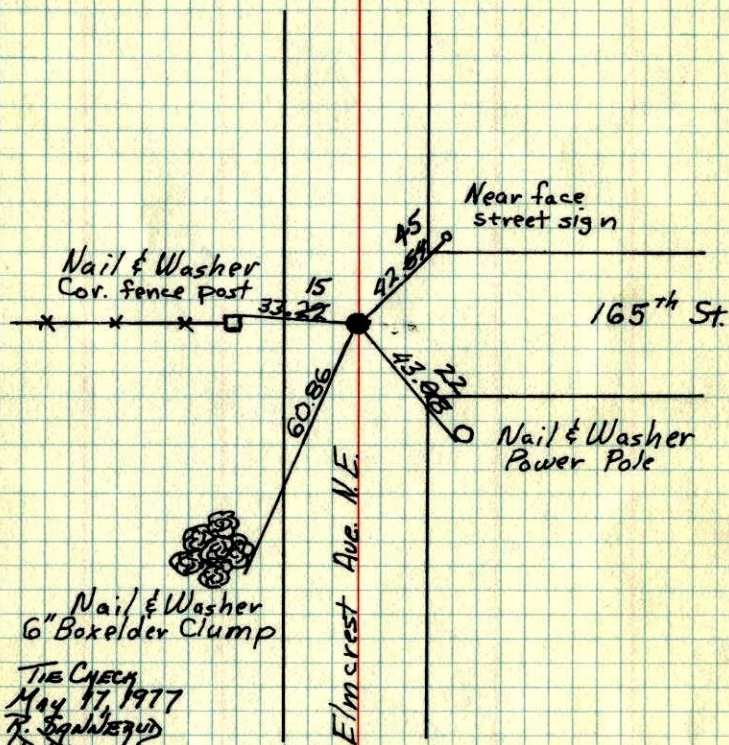 Near face
street sign
45
42.
Nail & Washer
Cor. fence post
15
33.22
165th St.
60.86
22
43.
Nail & Washer
Power Pole
Elmcrest Ave. N.E.
Nail & Washer
6" Boxelder Clump
TIE CHECK
May 17, 1977